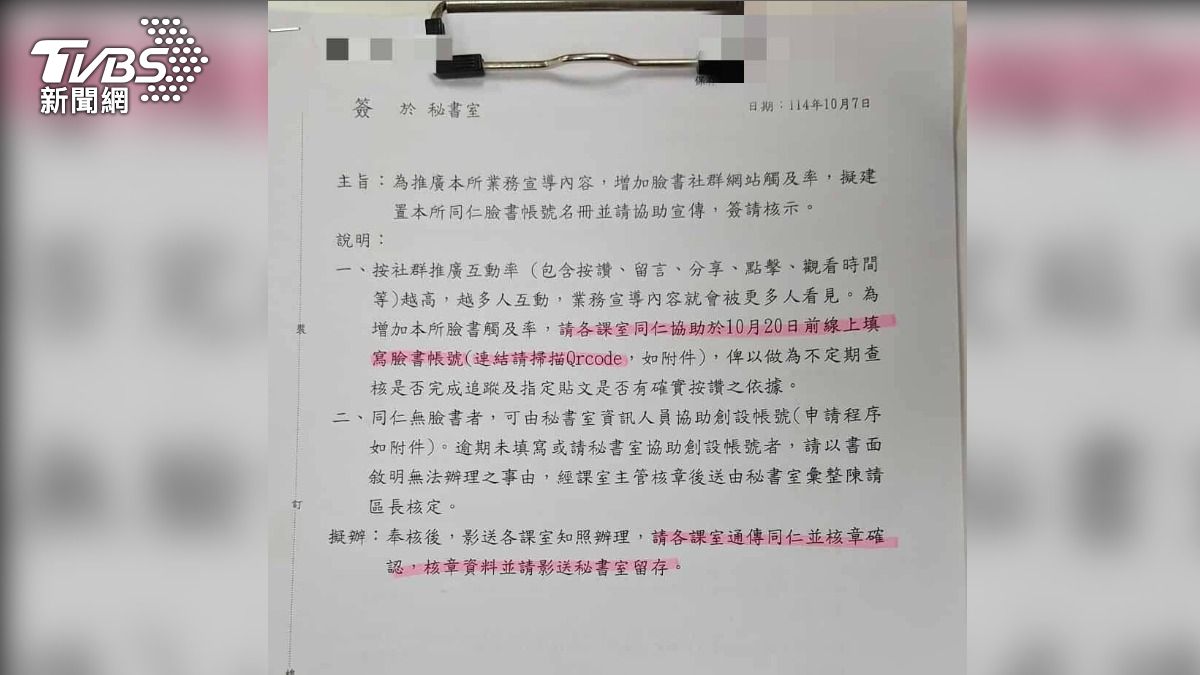 TVBS
新聞網
簽 於 秘書室
日期：114年10月7日
主旨：為推廣本所業務宣導內容，增加臉書社群網站觸及率，擬建
置本所同仁臉書帳號名冊並請協助宣傳，簽請核示。
說明：
一、按社群推廣互動率 (包含按讚、留言、分享、點擊、觀看時間
等)越高，越多人互動，業務宣導內容就會被更多人看見。為
增加本所臉書觸及率，請各課室同仁協助於10月20日前線上填
寫臉書帳號(連結請掃描Qrcode，如附件)，俾以做為不定期查
核是否完成追蹤及指定貼文是否有確實按讚之依據。
二、同仁無臉書者，可由秘書室資訊人員協助創設帳號(申請程序
如附件)。逾期未填寫或請秘書室協助創設帳號者，請以書面
敘明無法辦理之事由，經課室主管核章後送由秘書室彙整陳請
區長核定。
擬辦：奉核後，影送各課室知照辦理，請各課室通傳同仁並核章確
認，核章資料並請影送秘書室留存。
裝
訂